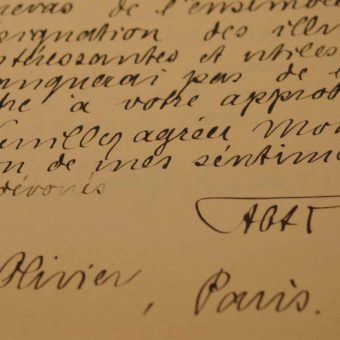 de l'ensemble
signation des illu
téressantes et utiles
anquerai pas de
à votre approb
Veuillez agréer Mon
on de mes sentime
dévoués
Olivier, Paris.